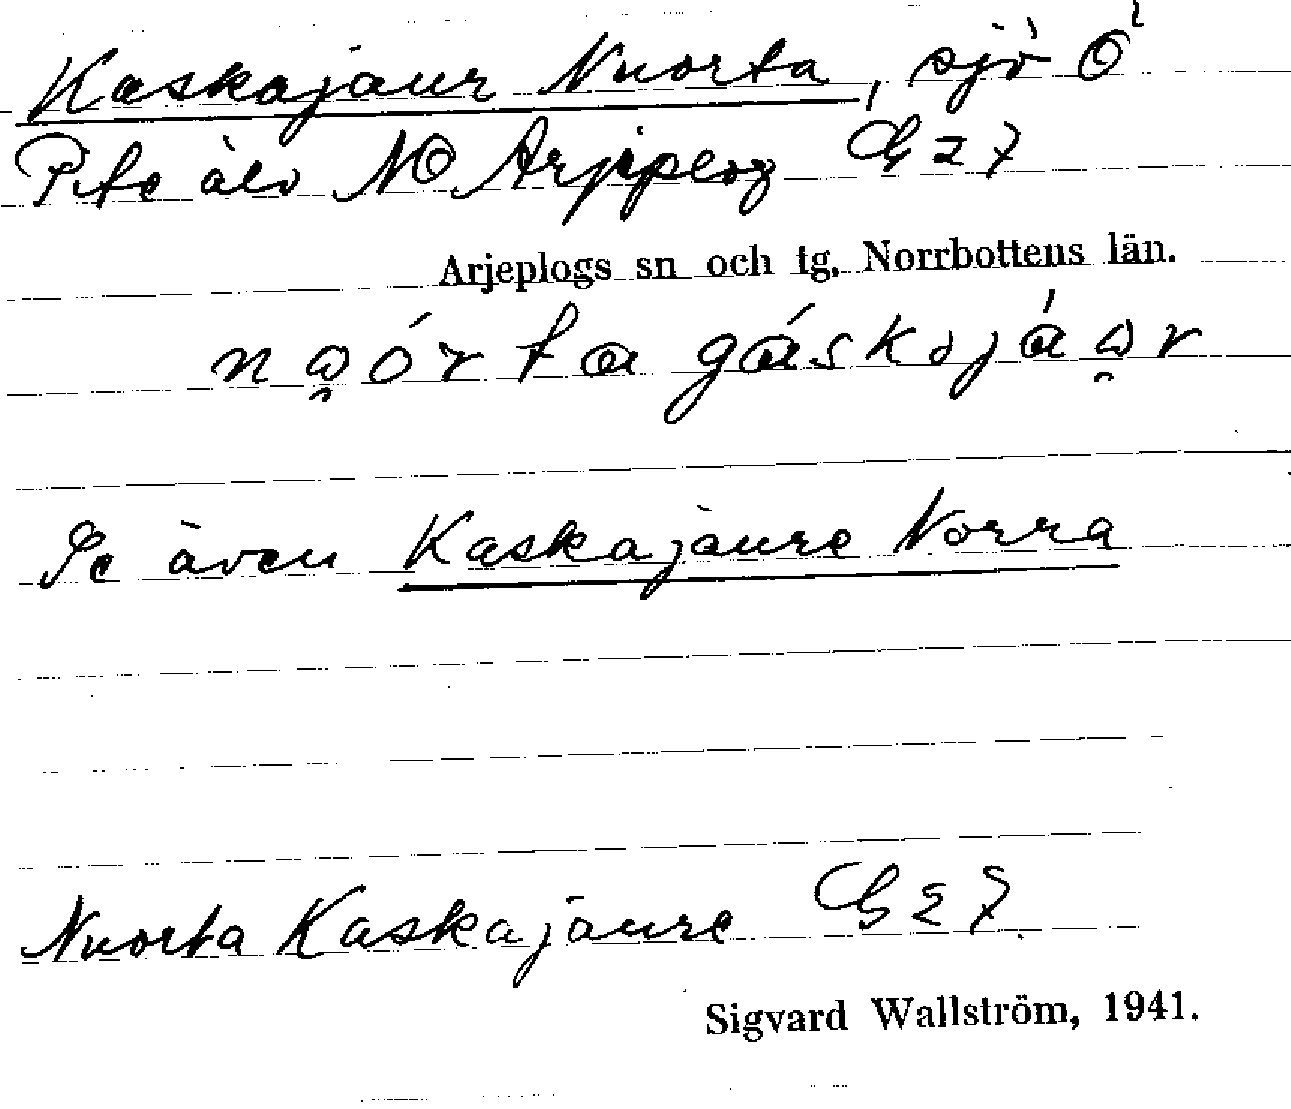 Kaskajaur Nuorta, sjö Ö
Pite älv NO Arjeplog G 27
Arjeplogs sn och tg. Norrbottens län.
Se även Kaskajaure Norra
Nuorta Kaskajaure G 27
Sigvard Wallström, 1941.